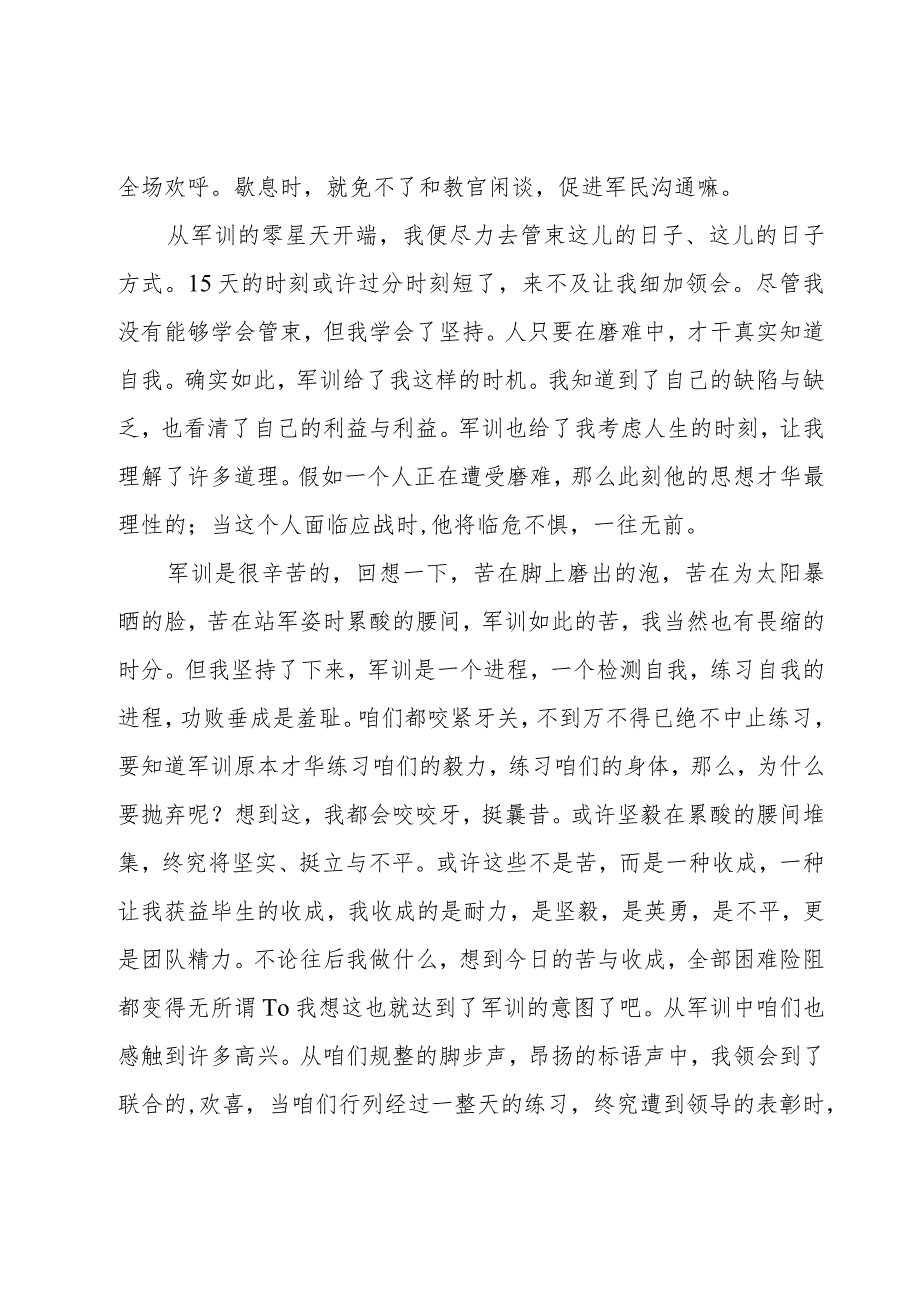 全场欢呼。歇息时，就免不了和教官闲谈，促进军民沟通嘛。
从军训的零星天开端，我便尽力去管束这儿的日子、这儿的日子
方式。15天的时刻或许过分时刻短了，来不及让我细加领会。尽管我
没有能够学会管束，但我学会了坚持。人只要在磨难中，才干真实知道
自我。确实如此，军训给了我这样的时机。我知道到了自己的缺陷与缺
乏，也看清了自己的利益与利益。军训也给了我考虑人生的时刻，让我
理解了许多道理。假如一个人正在遭受磨难，那么此刻他的思想才华最
理性的；当这个人面临应战时,他将临危不惧，一往无前。
军训是很辛苦的，回想一下，苦在脚上磨出的泡，苦在为太阳暴
晒的脸，苦在站军姿时累酸的腰间，军训如此的苦，我当然也有畏缩的
时分。但我坚持了下来，军训是一个进程，一个检测自我，练习自我的
进程，功败垂成是羞耻。咱们都咬紧牙关，不到万不得已绝不中止练习，
要知道军训原本才华练习咱们的毅力，练习咱们的身体，那么，为什么
要抛弃呢？想到这，我都会咬咬牙，挺曩昔。或许坚毅在累酸的腰间堆
集，终究将坚实、挺立与不平。或许这些不是苦，而是一种收成，一种
让我获益毕生的收成，我收成的是耐力，是坚毅，是英勇，是不平，更
是团队精力。不论往后我做什么，想到今日的苦与收成，全部困难险阻
都变得无所谓To我想这也就达到了军训的意图了吧。从军训中咱们也
感触到许多高兴。从咱们规整的脚步声，昂扬的标语声中，我领会到了
联合的,欢喜，当咱们行列经过一整天的练习，终究遭到领导的表彰时，